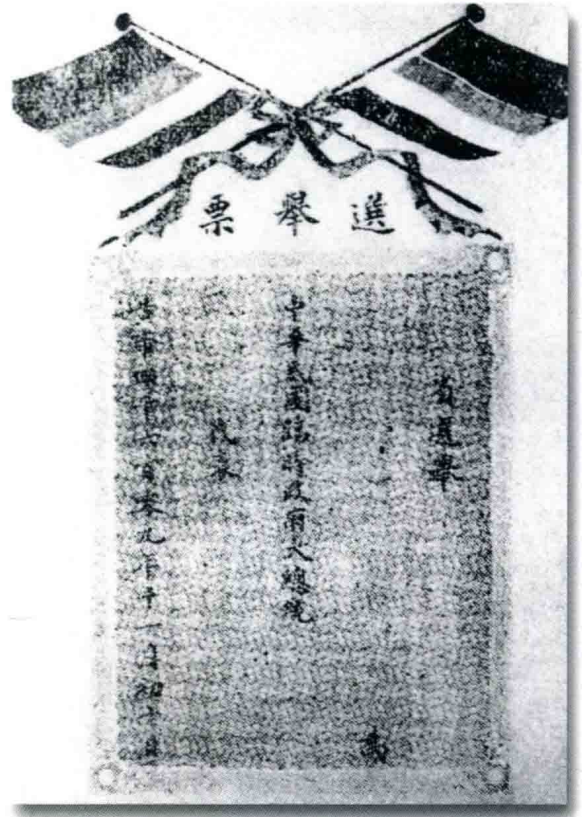 選舉票
茲選舉
為
中華民國臨時政府大總統
代表
黃帝四千六百零九年十一月初十日